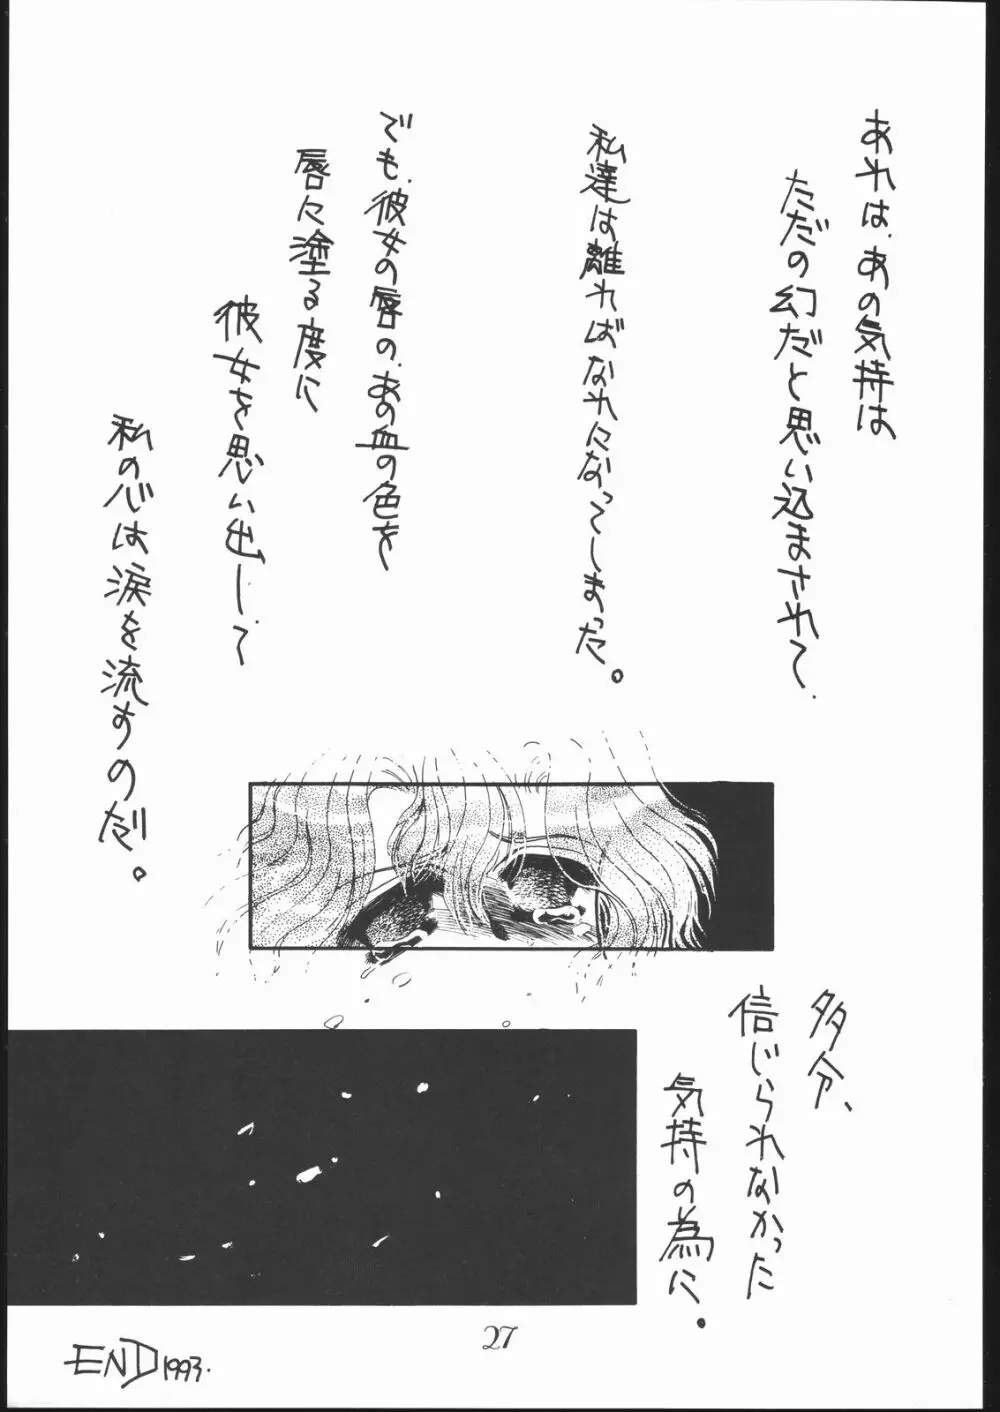 あれは、あの気持は
ただの幻だと思い込まされて、
私達は離ればなれになってしまった。
でも、彼女の唇の、あの血の色を
唇に塗る度に
彼女を思い出して
私の心は涙を流すのだ。
多分、
信じられなかった
気持の為に。
27
END 1993.